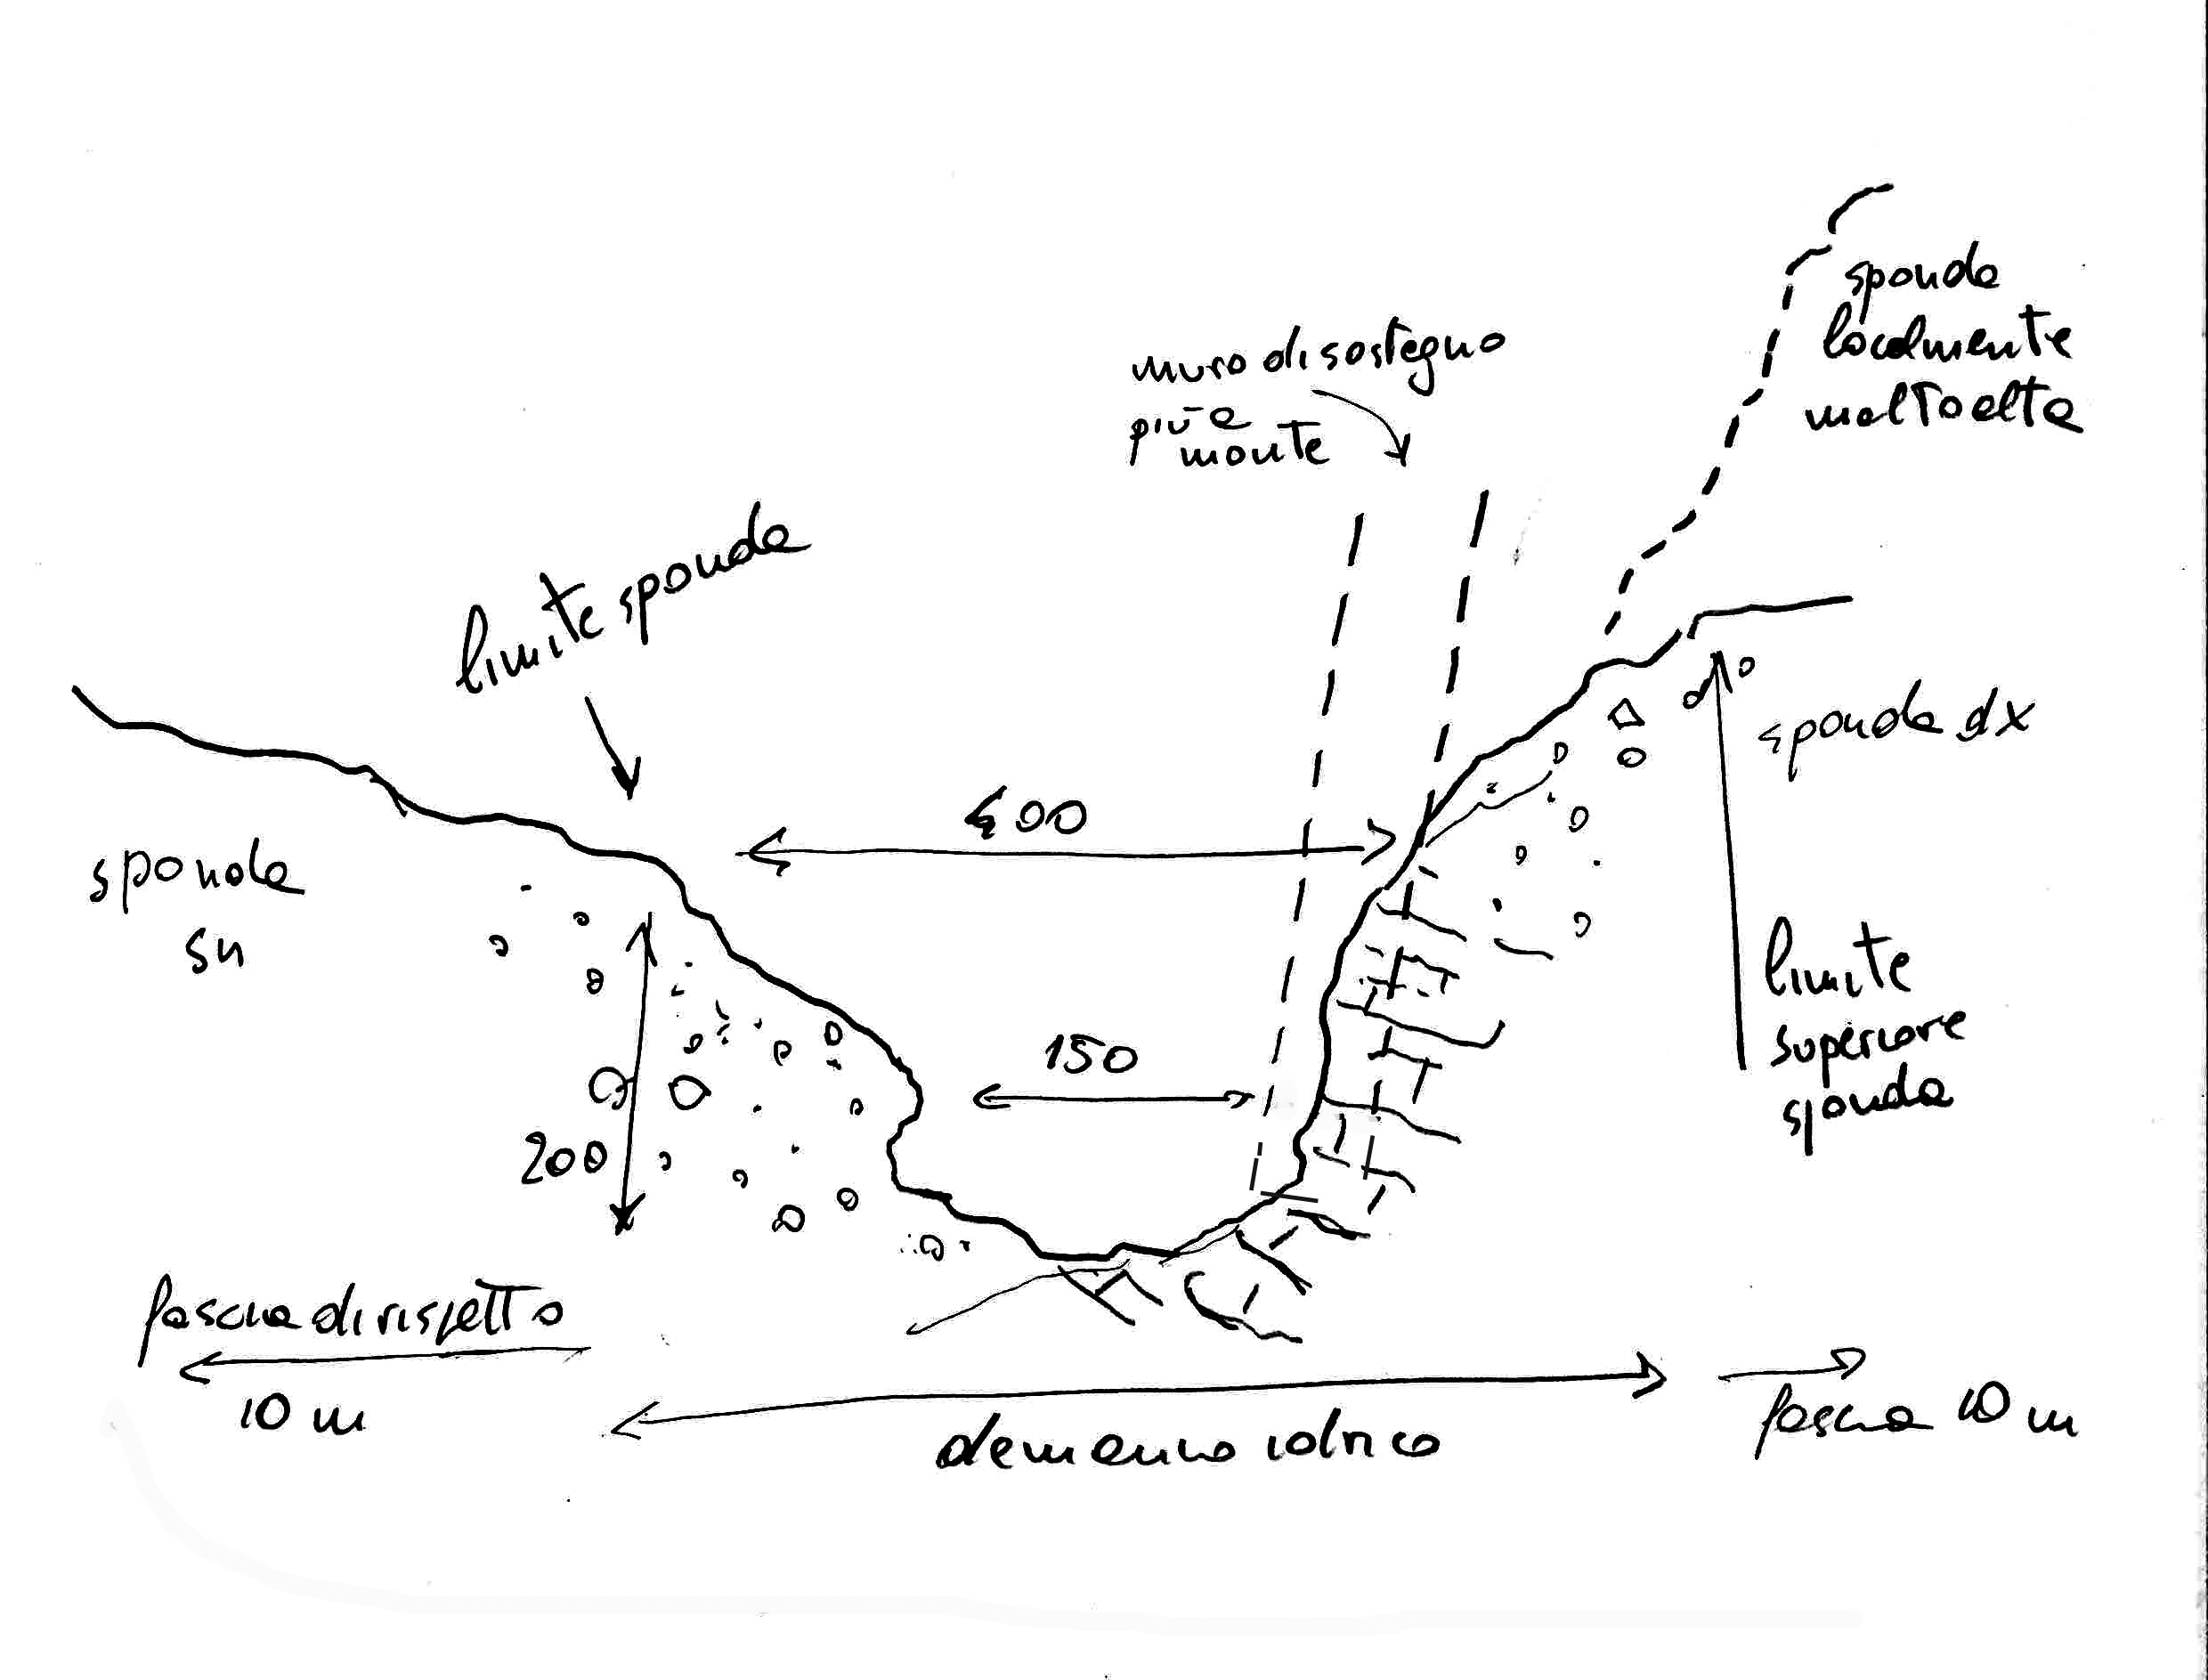 sponda
localmente
molto alta
muro di sostegno
più a
monte
limite sponda
sponda dx
400
sponda
sn
limite
superiore
sponda
150
200
fascia di rispetto
10 m
demanio idrico
fascia 10 m